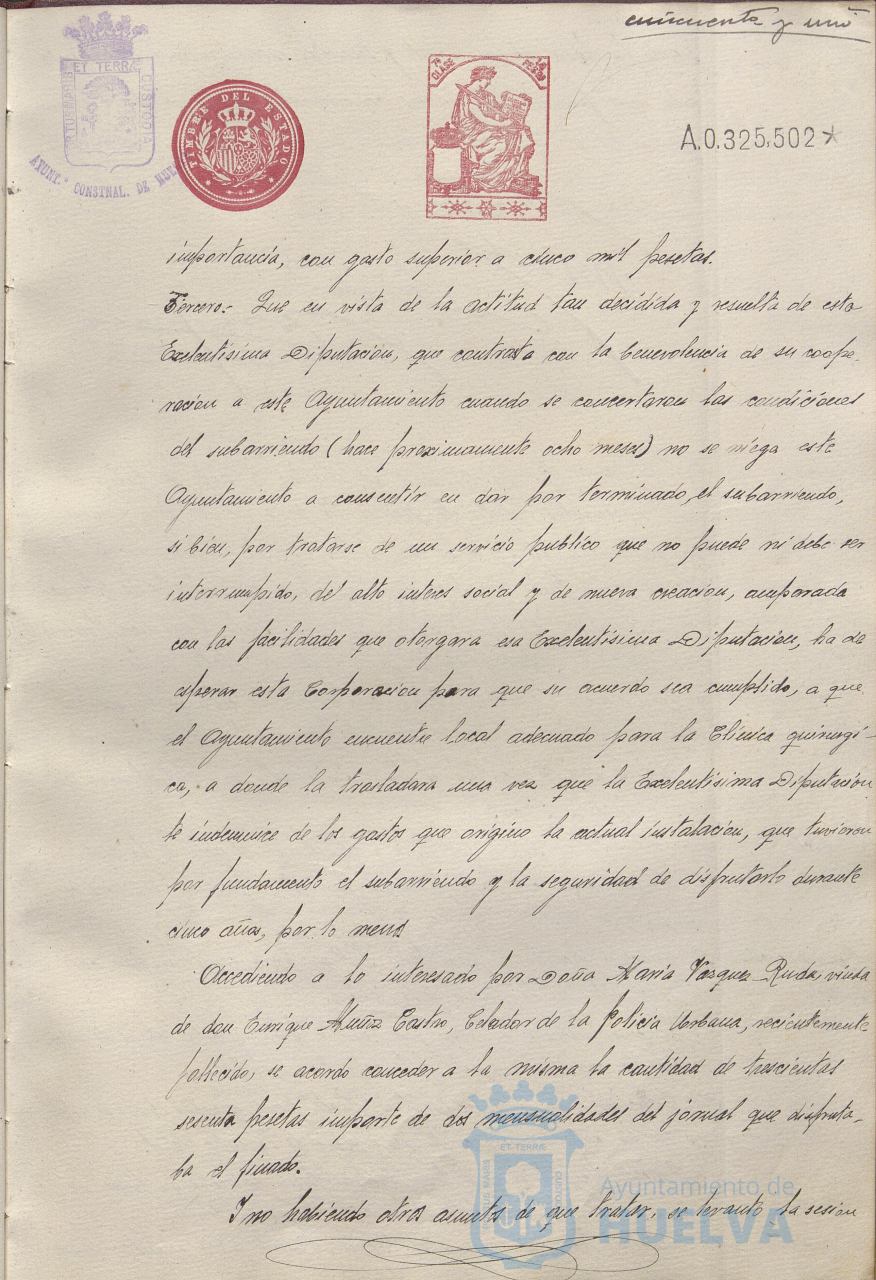 cincuenta y uno
ET TERRÆ
CUSTODIA
AYUNT.º CONSTNAL. DE
TIMBRE DEL ESTADO
7ª CLASE
PESETA
A.0.325,502*
importancia, con gasto superior a cinco mil pesetas.
Tercero.- Que en vista de la actitud tan decidida y resuelta de esta
Exelentisima Diputacion, que contrasta con la benevolencia de su coope-
racion a este Ayuntamiento cuando se concertaron las condiciones
del subarriendo (hace proximamente ocho meses) no se niega este
Ayuntamiento a consentir en dar por terminado, el subarriendo,
si bien, por tratarse de un servicio publico que no puede ni debe ser
interrumpido, del alto interes social y de nueva creacion, amparada
con las facilidades que otorgara esa Exelentisima Diputacion, ha de
esperar esta Corporacion para que su acuerdo sea cumplido, a que
el Ayuntamiento encuentre local adecuado para la Clinica quirurgi-
ca, a donde la trasladara una vez que la Exelentisima Diputacion
le indemnice de los gastos que origino la actual instalacion, que tuvieron
por fundamento el subarriendo y la seguridad de disfrutarlo durante
cinco años, por lo menos
Accediendo a lo interesado por Doña Maria Vazquez Ruda, viuda
de don Enrique Muñiz Castro, Celador de la Policia Urbana, recientemente
fallecido, se acordo conceder a la misma la cantidad de trescientas
sesenta pesetas importe de dos mensualidades del jornal que disfruta-
ba el finado.
I no habiendo otros asuntos de que tratar, se levanto la sesion
ET TERRÆ
Ayuntamiento de
HUELVA